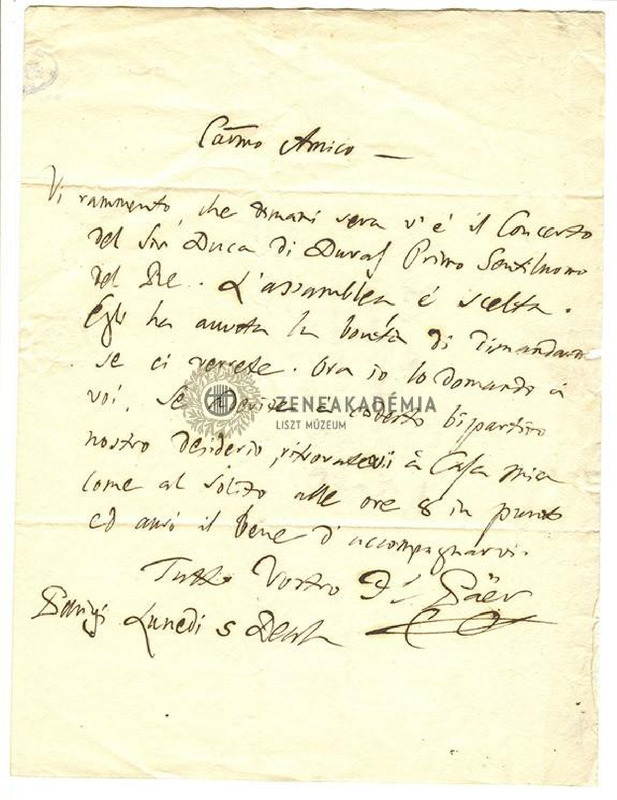 Carmo Amico —
Vi rammento, che domani sera v'è il Concerto
del Sir Duca di Duras Primo Gentiluomo
del Re. L'assamblea è scelta.
Egli ha avuta la bontà di dimandarmi
se ci verrete. Ora io lo domando à
voi. Se
nostro desiderio, ritrovatevi à Casa mia
come al solito alle ore 8 in punto
ed avrò il bene d'accompagnarvi.
Tutto Vostro Paër
Parigi Lunedi 5
ZENEAKADÉMIA
LISZT MÚZEUM